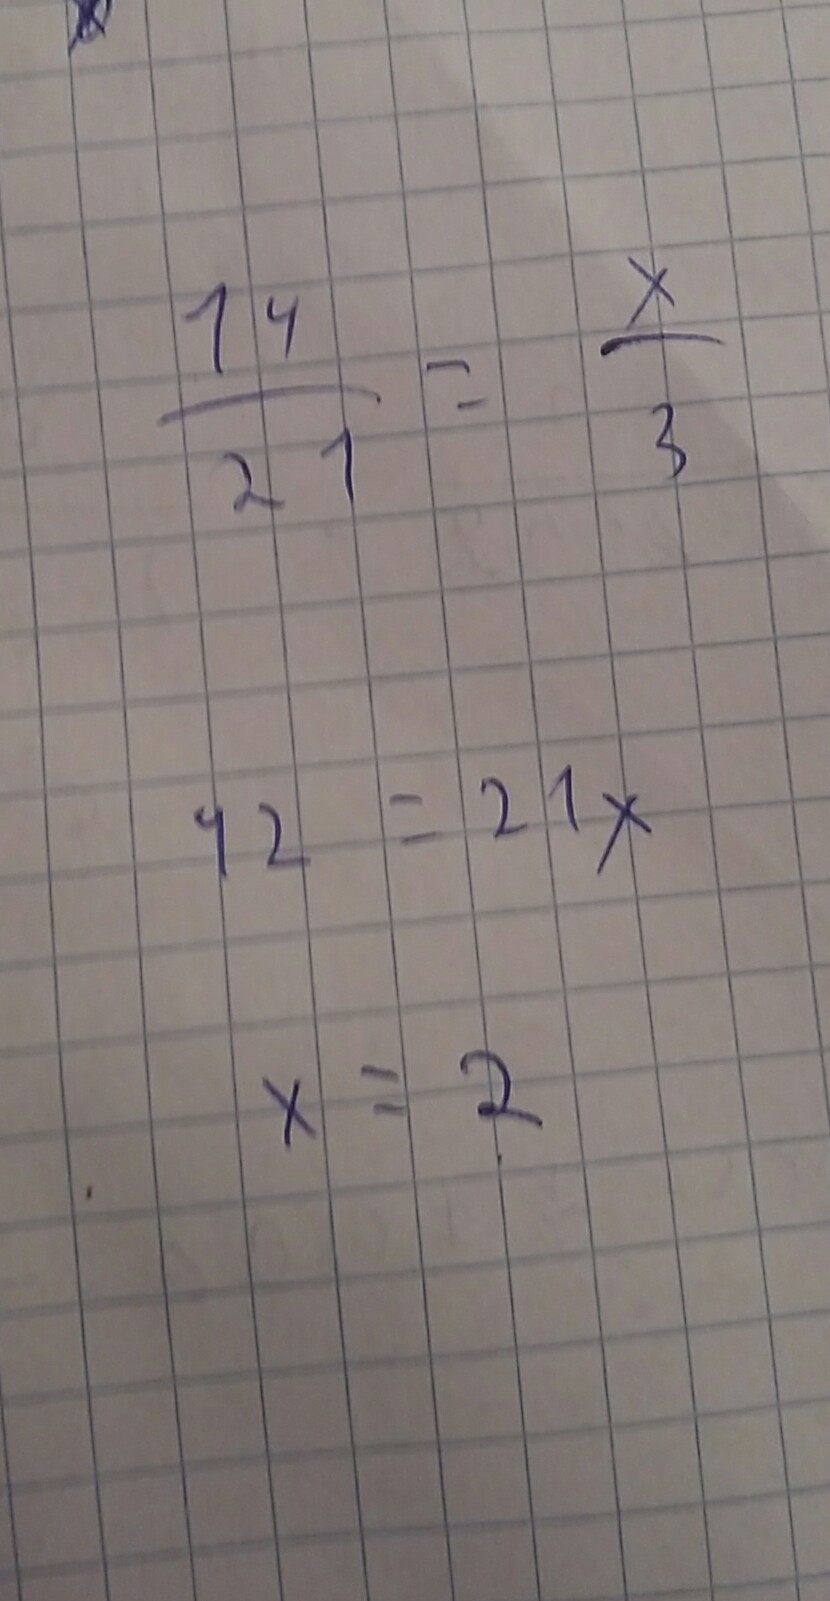 14/21 = x/3
42 = 21x
x = 2